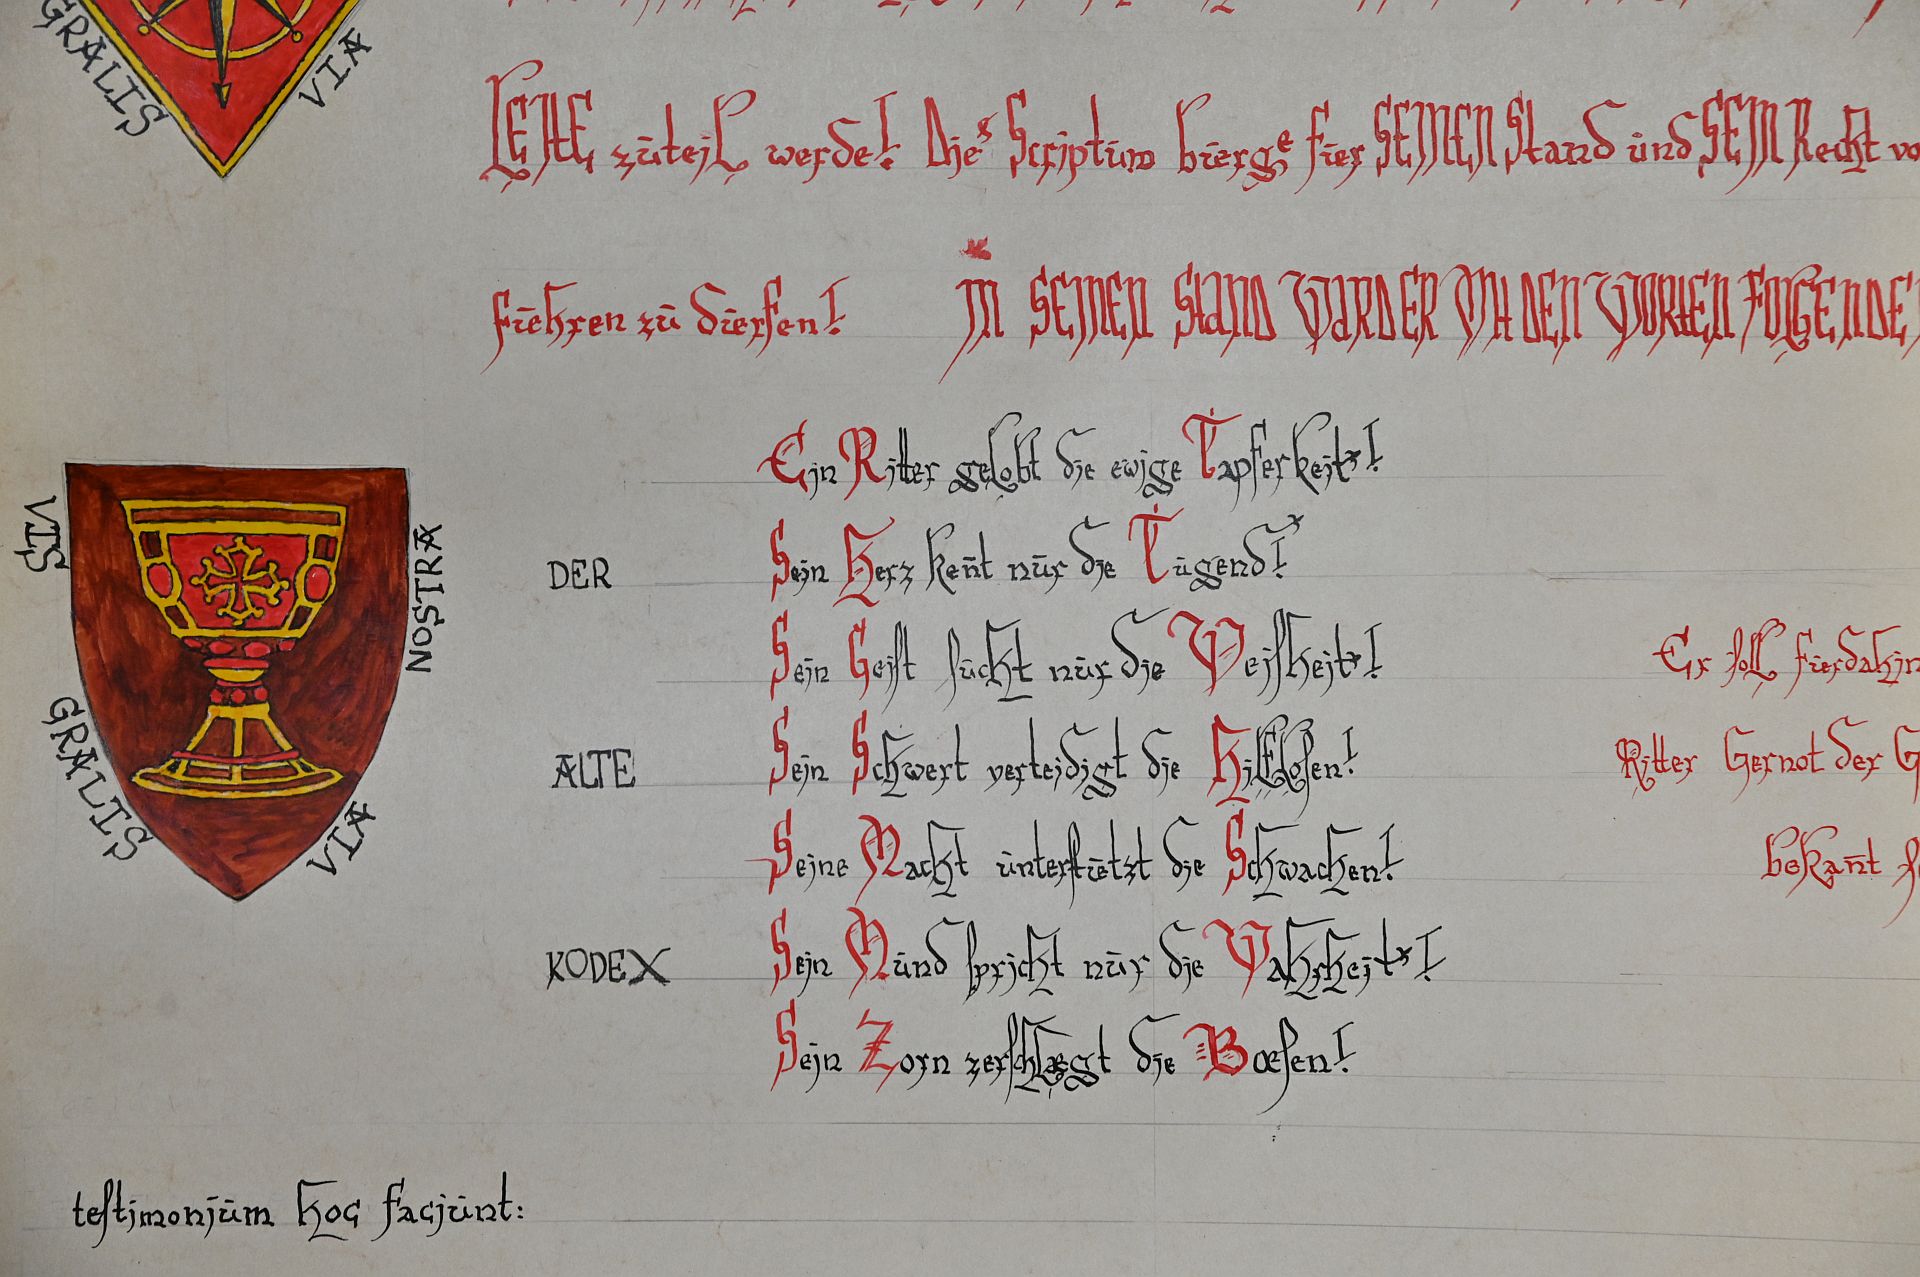 GRALIS VIA
LEHE zuteil werde! Dies Scriptum bierge fier SEINEN Stand und SEIN Recht
fiehren zu dierfen! IN SEINEN STAND WARD ER MIT DEN WORTEN FOLGENDE
Ein Ritter gelobt die ewige Tapferkeit!
VIS NOSTRA
DER Sein Herz keñt nur die Tugend!
Sein Geist sucht nur die Weisheit! Er soll fierdahin
GRALIS VIA
ALTE Sein Schwert verteidigt die Hilflosen! Ritter Gernot der
Seine Macht unterstietzt die Schwachen! bekañt
KODEX Sein Mund spricht nur die Wahrheit!
Sein Zorn zerschlægt die Bœsen!
testimonium hoc faciunt: